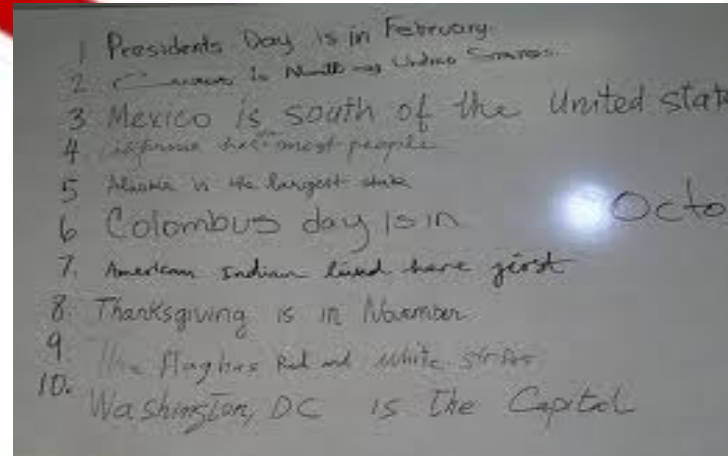 1 Presidents Day is in February.
2 Canada Is North of United States.
3 Mexico is south of the United state
4 California has the most people
5 Alaska is the largest state
6 Colombus day is in Octo
7. American Indian lived here first
8. Thanksgiving is in November
9 The flag has Red and white stripes
10. Washington, DC is the Capital